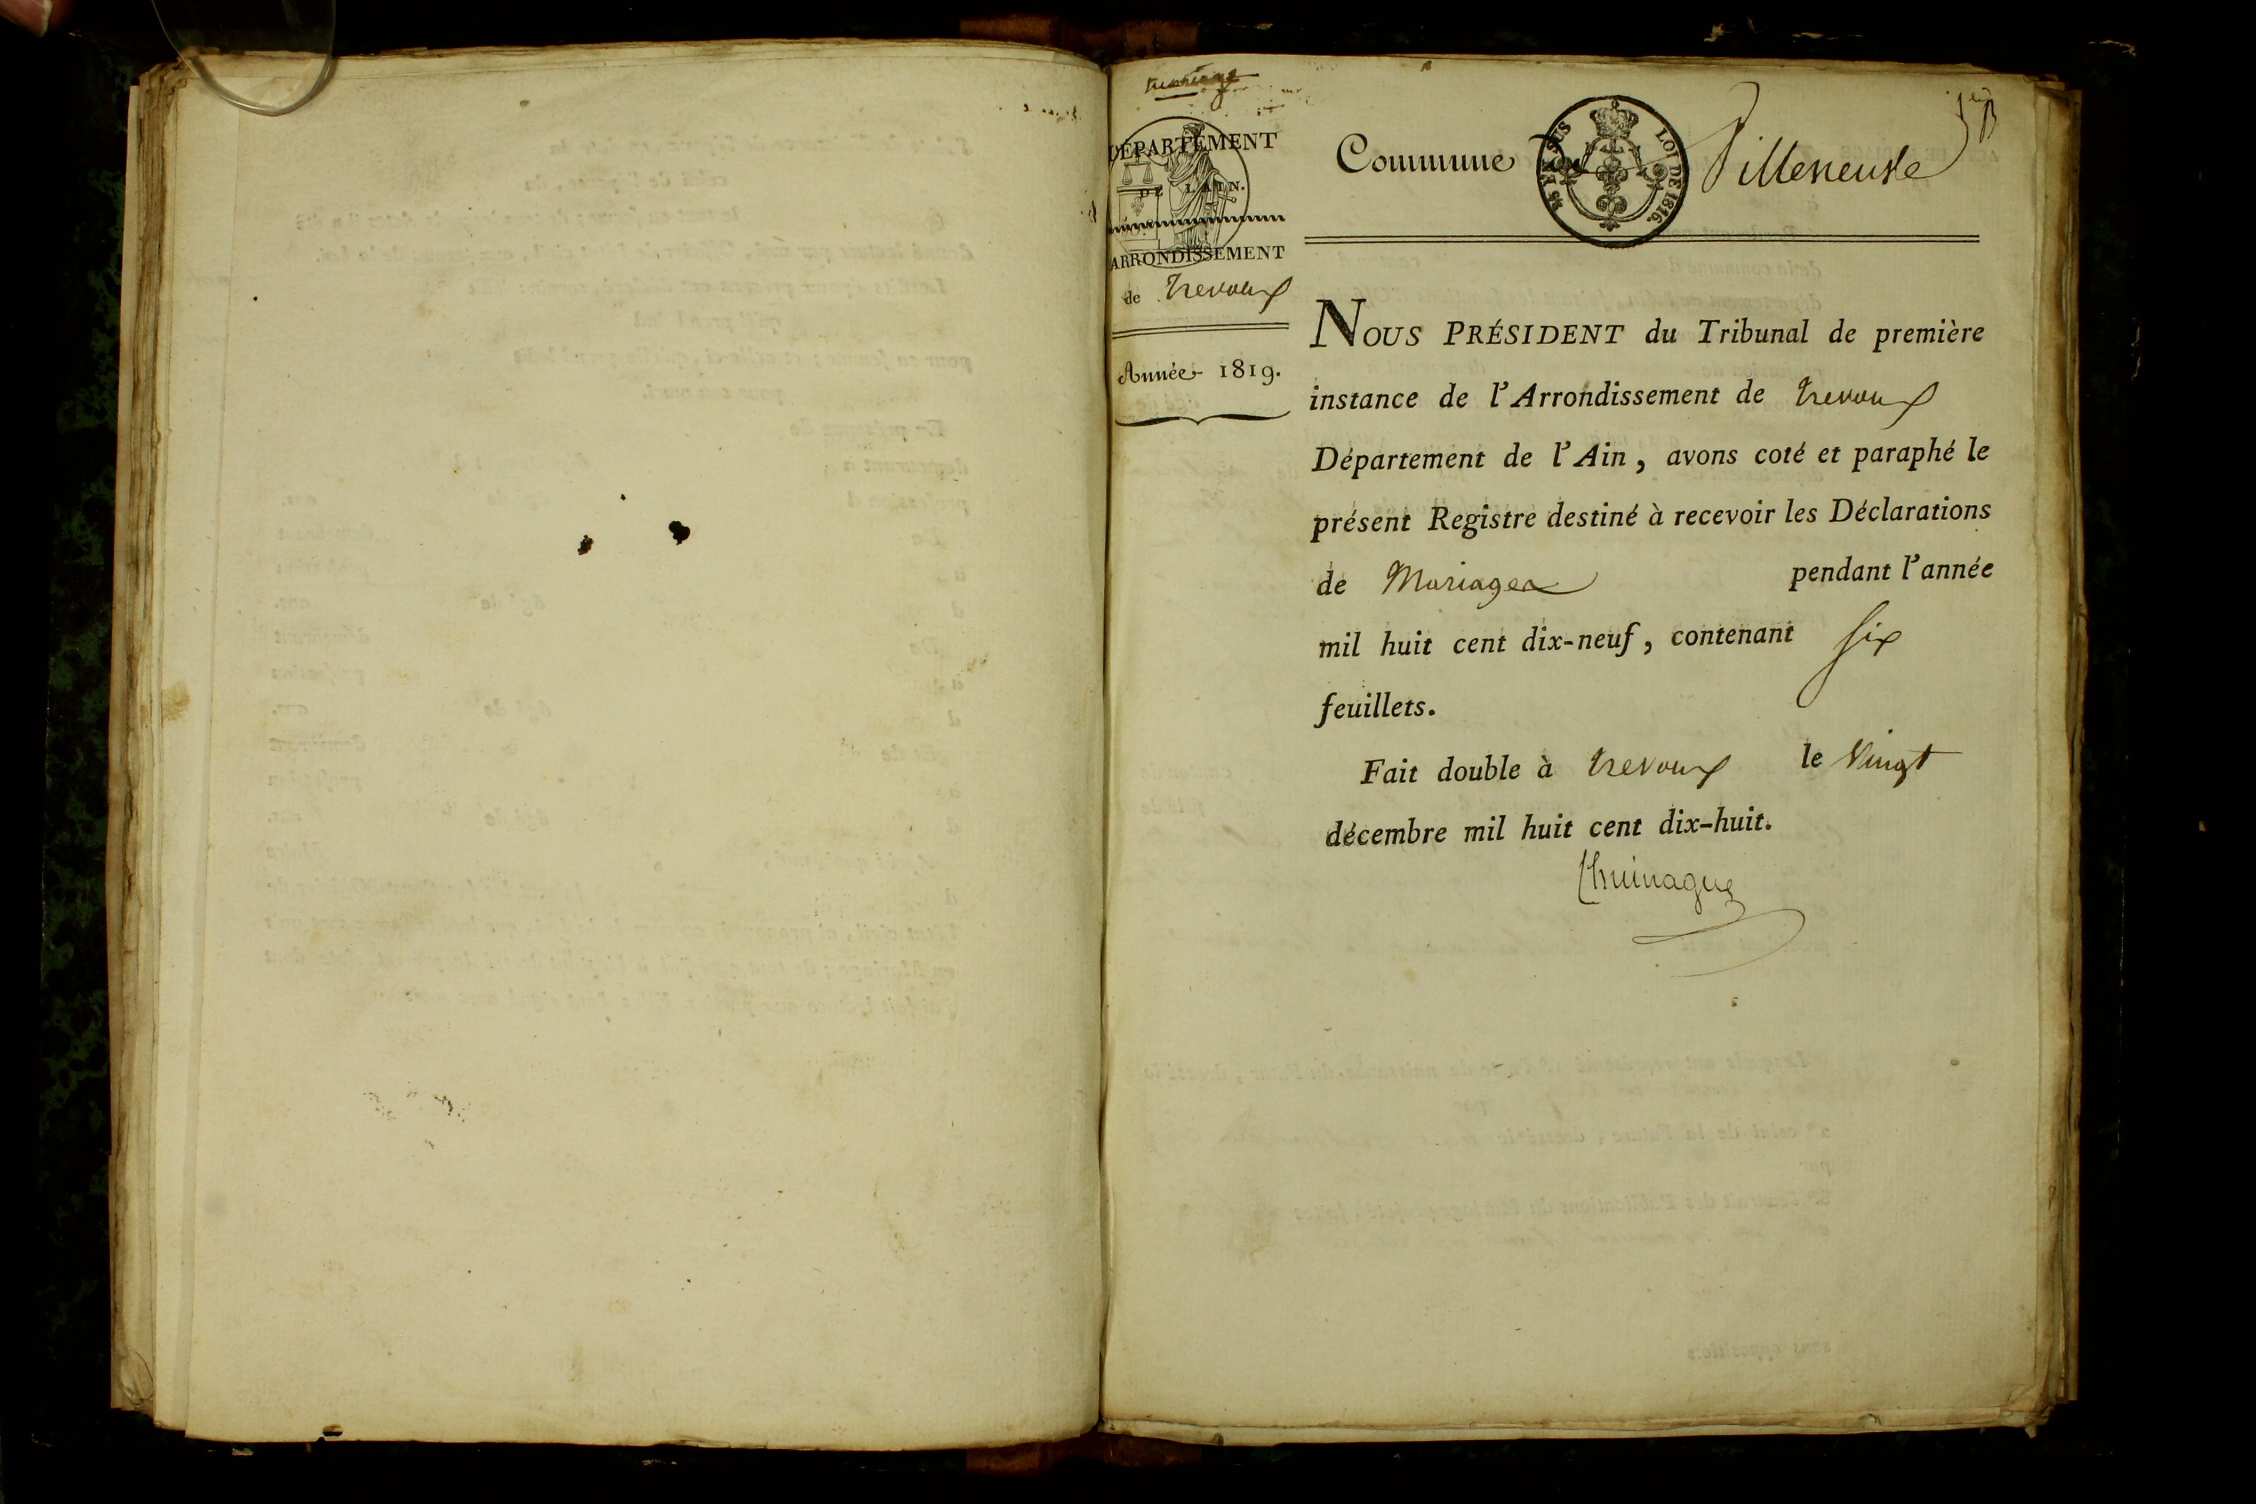 1er
DÉPARTEMENT
DE L'AIN.
ARRONDISSEMENT
de Trevoux
Année 1819.
Commune de Villeneuve
25 EN SUS
LOI DE 1816.
NOUS PRÉSIDENT du Tribunal de première
instance de l'Arrondissement de Trevoux
Département de l'Ain, avons coté et paraphé le
présent Registre destiné à recevoir les Déclarations
de Mariages pendant l'année
mil huit cent dix-neuf, contenant six
feuillets.
Fait double à Trevoux le Vingt
décembre mil huit cent dix-huit.